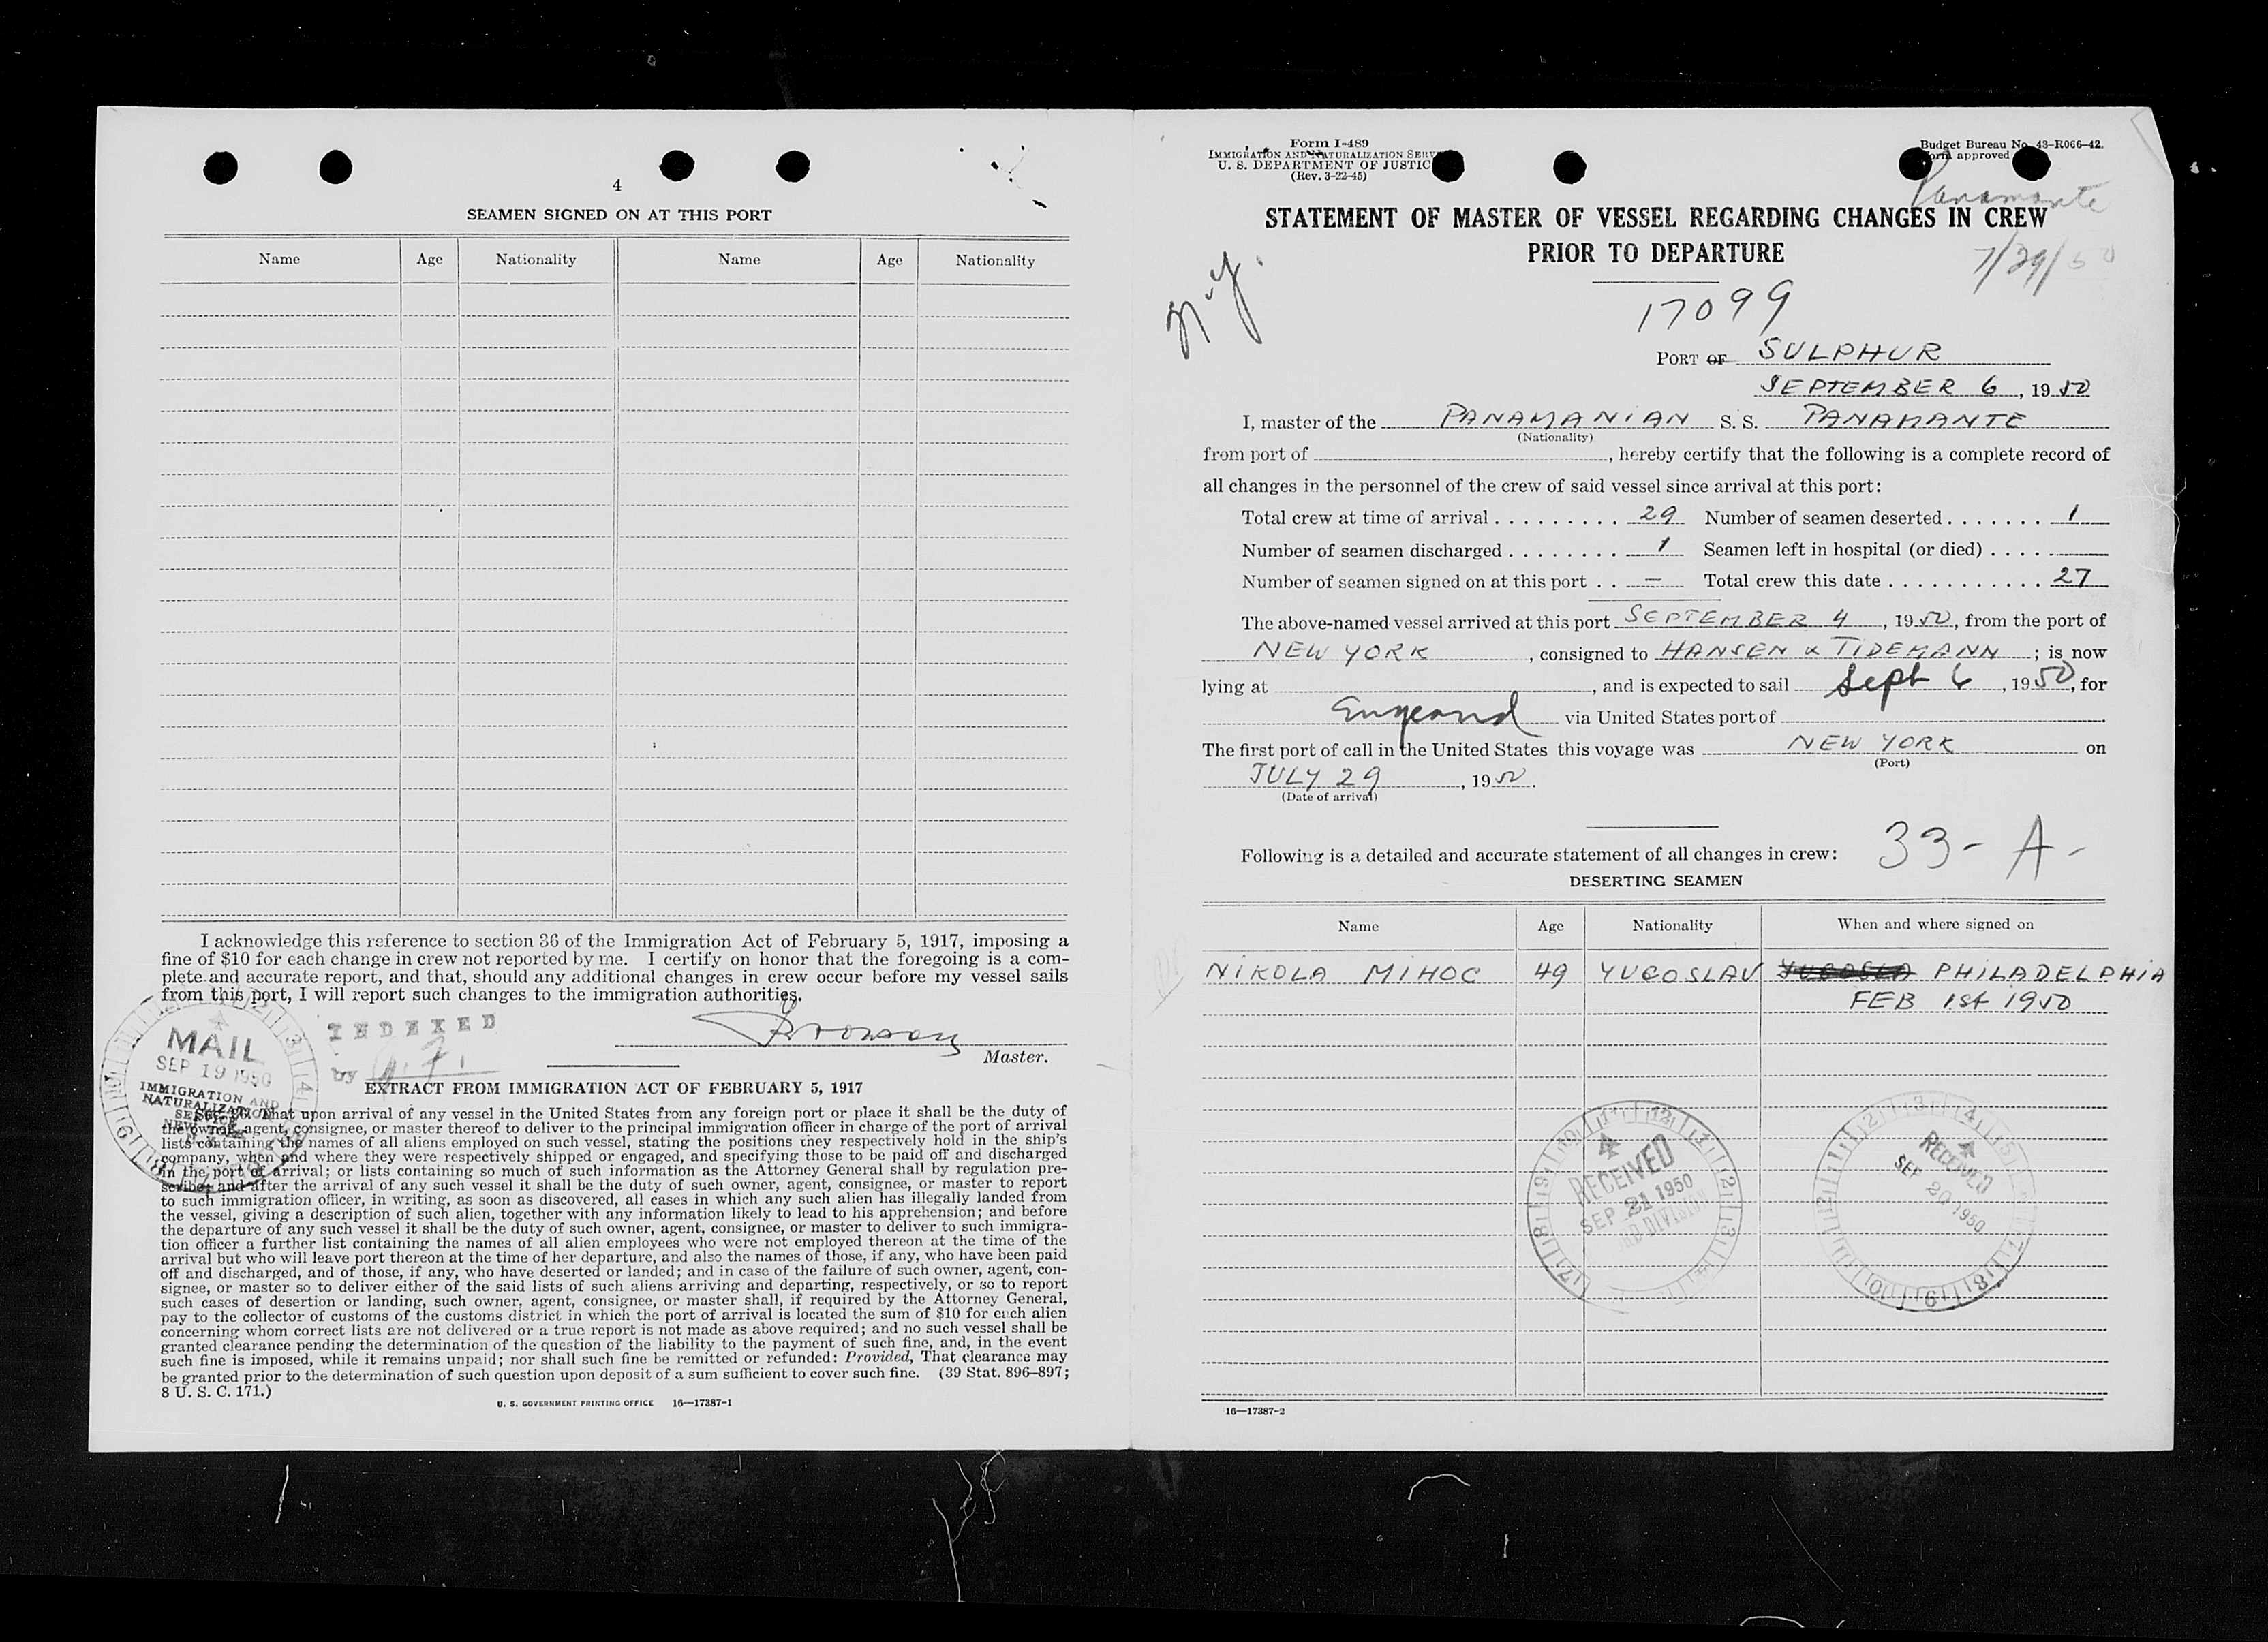 4
SEAMEN SIGNED ON AT THIS PORT
Name Age Nationality Name Age Nationality
I acknowledge this reference to section 36 of the Immigration Act of February 5, 1917, imposing a
fine of $10 for each change in crew not reported by me. I certify on honor that the foregoing is a com-
plete and accurate report, and that, should any additional changes in crew occur before my vessel sails
from this port, I will report such changes to the immigration authorities.
INDEXED
by
Master.
MAIL
SEP 19 1950
IMMIGRATION AND
NATURALIZATION
EXTRACT FROM IMMIGRATION ACT OF FEBRUARY 5, 1917
Sec. 36. That upon arrival of any vessel in the United States from any foreign port or place it shall be the duty of
the owner, agent, consignee, or master thereof to deliver to the principal immigration officer in charge of the port of arrival
lists containing the names of all aliens employed on such vessel, stating the positions they respectively hold in the ship's
company, when and where they were respectively shipped or engaged, and specifying those to be paid off and discharged
in the port of arrival; or lists containing so much of such information as the Attorney General shall by regulation pre-
scribe; and after the arrival of any such vessel it shall be the duty of such owner, agent, consignee, or master to report
to such immigration officer, in writing, as soon as discovered, all cases in which any such alien has illegally landed from
the vessel, giving a description of such alien, together with any information likely to lead to his apprehension; and before
the departure of any such vessel it shall be the duty of such owner, agent, consignee, or master to deliver to such immigra-
tion officer a further list containing the names of all alien employees who were not employed thereon at the time of the
arrival but who will leave port thereon at the time of her departure, and also the names of those, if any, who have been paid
off and discharged, and of those, if any, who have deserted or landed; and in case of the failure of such owner, agent, con-
signee, or master so to deliver either of the said lists of such aliens arriving and departing, respectively, or so to report
such cases of desertion or landing, such owner, agent, consignee, or master shall, if required by the Attorney General,
pay to the collector of customs of the customs district in which the port of arrival is located the sum of $10 for each alien
concerning whom correct lists are not delivered or a true report is not made as above required; and no such vessel shall be
granted clearance pending the determination of the question of the liability to the payment of such fine, and, in the event
such fine is imposed, while it remains unpaid; nor shall such fine be remitted or refunded: Provided, That clearance may
be granted prior to the determination of such question upon deposit of a sum sufficient to cover such fine. (39 Stat. 896–897;
8 U. S. C. 171.)
U. S. GOVERNMENT PRINTING OFFICE 16—17387-1
Form I-489
IMMIGRATION AND NATURALIZATION SERV
U. S. DEPARTMENT OF JUSTIC
(Rev. 3-22-45)
Budget Bureau No. 43–R066–42.
Form approved
Panamante
STATEMENT OF MASTER OF VESSEL REGARDING CHANGES IN CREW
PRIOR TO DEPARTURE
7/29/50
N.Y.
17099
PORT OF SULPHUR
SEPTEMBER 6, 1950
I, master of the PANAMANIAN S. S. PANAMANTE
(Nationality)
from port of , hereby certify that the following is a complete record of
all changes in the personnel of the crew of said vessel since arrival at this port:
Total crew at time of arrival . . . . . . . . . 29 Number of seamen deserted . . . . . . . 1
Number of seamen discharged . . . . . . . . 1 Seamen left in hospital (or died) . . . .
Number of seamen signed on at this port . . — Total crew this date . . . . . . . . . . . . 27
The above-named vessel arrived at this port SEPTEMBER 4, 1950, from the port of
NEW YORK, consigned to HANSEN & TIDEMANN; is now
lying at , and is expected to sail Sept 6, 1950, for
England via United States port of .
The first port of call in the United States this voyage was NEW YORK on
(Port)
JULY 29, 1950.
(Date of arrival)
Following is a detailed and accurate statement of all changes in crew: 33-A-
DESERTING SEAMEN
Name Age Nationality When and where signed on
NIKOLA MIHOC 49 YUGOSLAV PHILADELPHIA
FEB 1st 1950
RECEIVED
SEP 21 1950
RECEIVED
SEP 20 1950
16—17387-2